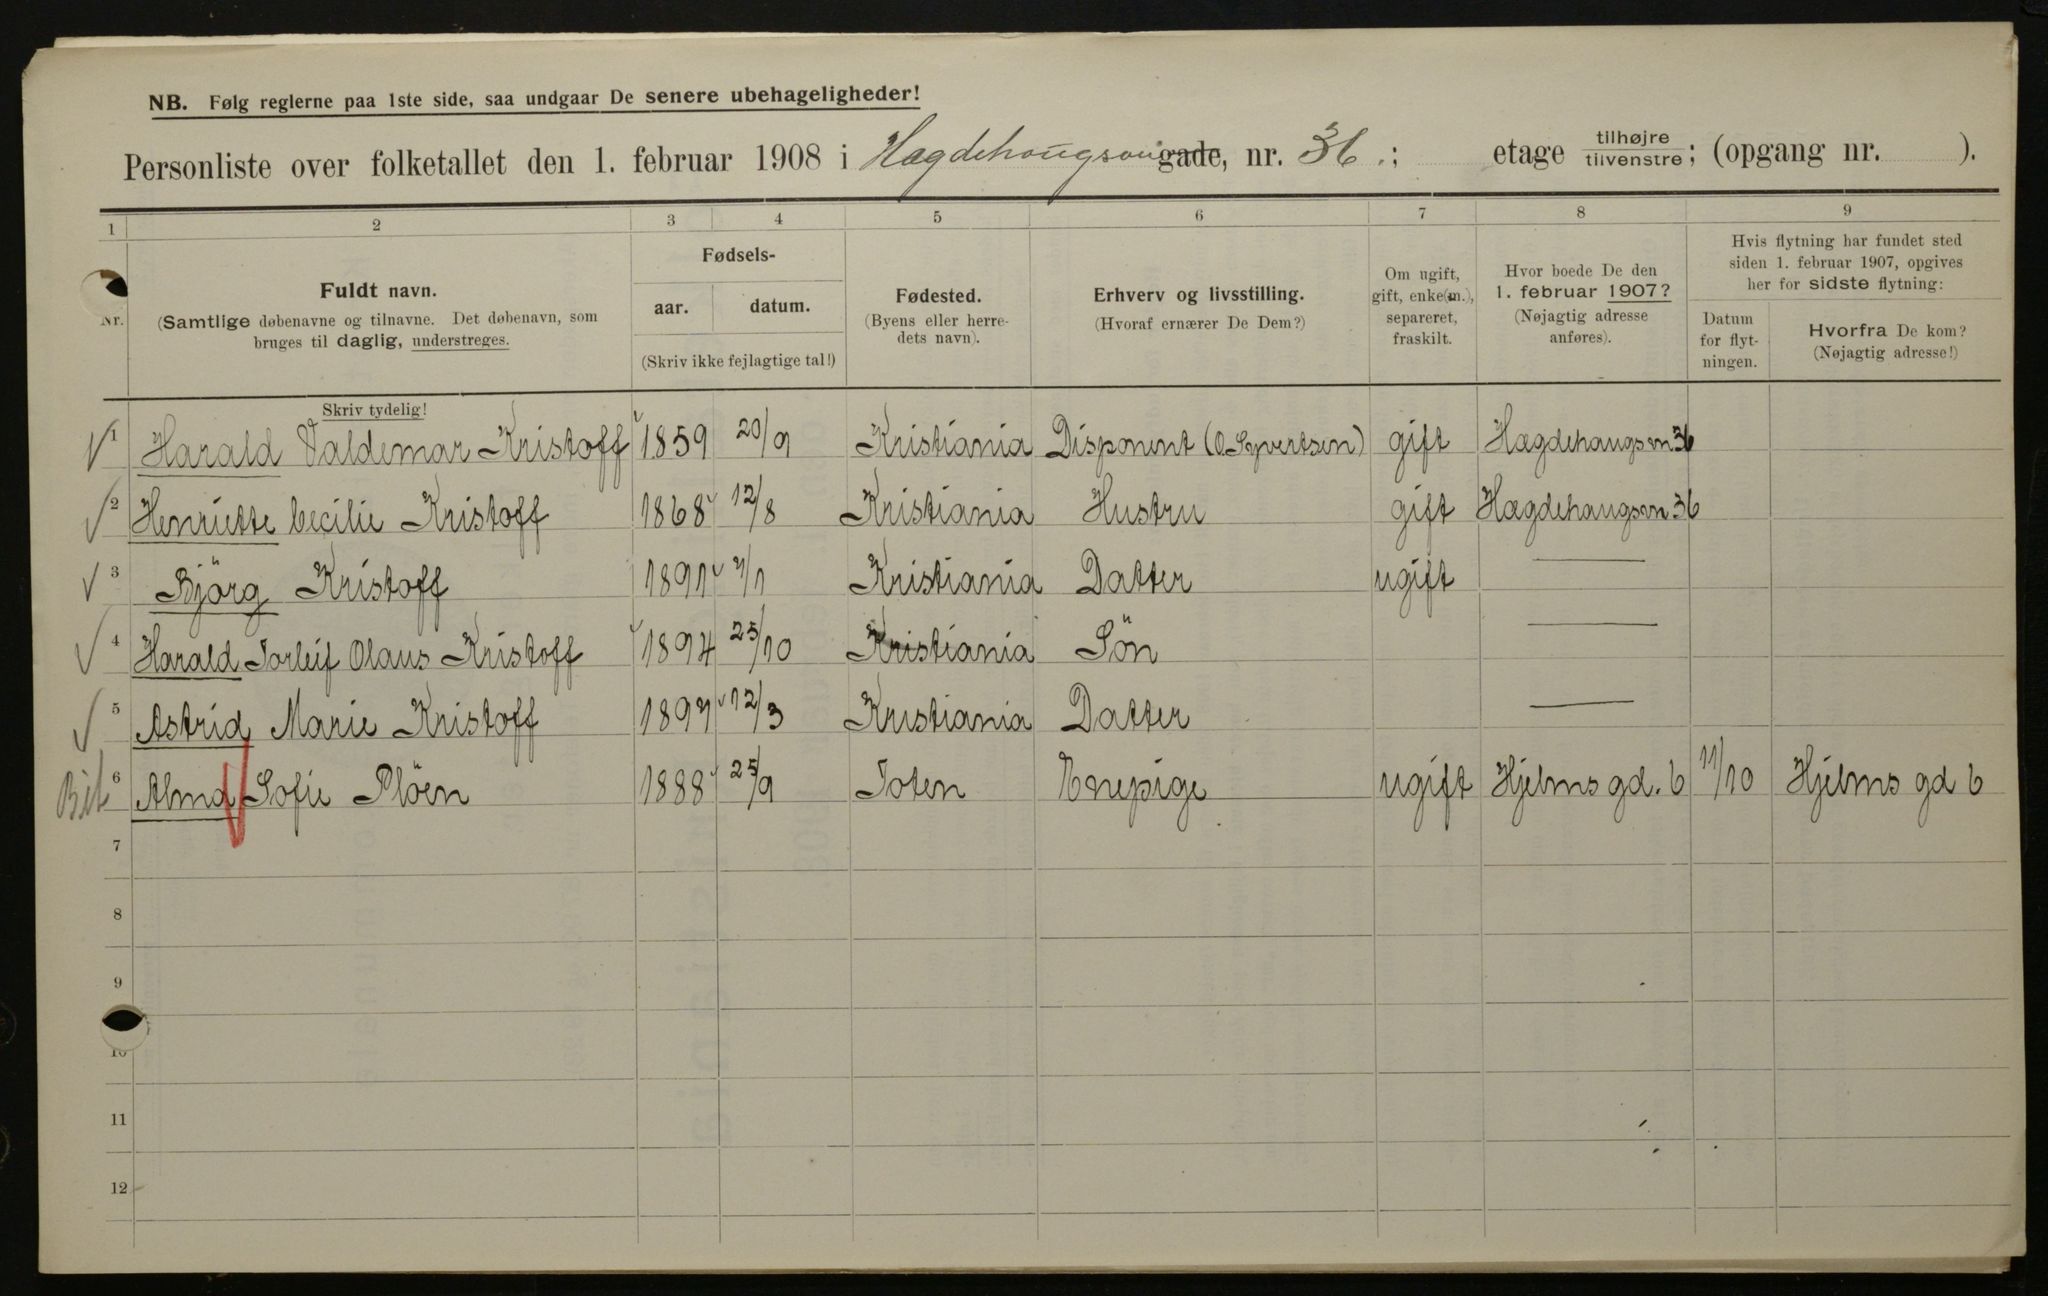 NB. Følg reglerne paa 1ste side, saa undgaar De senere ubehageligheder!
Personliste over folketallet den 1. februar 1908 i Hægdehougsvngade, nr. 36.; etage tilhøjre tilvenstre; (opgang nr. ).
1 2 3 4 5 6 7 8 9
Nr.
Fuldt navn.
(Samtlige døbenavne og tilnavne. Det døbenavn, som
bruges til daglig, understreges.
Skriv tydelig!
Fødsels-
aar. datum.
(Skriv ikke fejlagtige tal!)
Fødested.
(Byens eller herre-
dets navn).
Erhverv og livsstilling.
(Hvoraf ernærer De Dem?)
Om ugift,
gift, enke(m.),
separeret,
fraskilt.
Hvor boede De den
1. februar 1907?
(Nøjagtig adresse
anføres).
Hvis flytning har fundet sted
siden 1. februar 1907, opgives
her for sidste flytning:
Datum
for flyt-
ningen.
Hvorfra De kom?
(Nøjagtig adresse!)
1 Harald Valdemar Kristoff 1859 20/9 Kristiania Disponent (O. Syvertsen) gift Hægdehaugsvn 36
2 Henriette Cecilie Kristoff 1868 12/8 Kristiania Hustru gift Hægdehaugsvn 36
3 Bjørg Kristoff 1891 7/1 Kristiania Datter ugift —
4 Harald Torleif Olaus Kristoff 1894 25/10 Kristiania Sön —
5 Astrid Marie Kristoff 1897 12/3 Kristiania Datter —
6 Alma Sofie Plöen 1888 25/9 Toten Enepige ugift Hjelms gd. 6 11/10 Hjelms gd 6
7
8
9
10
11
12